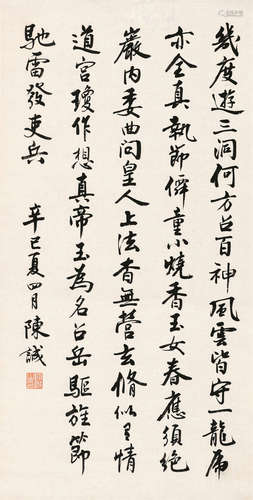 幾度遊三洞何方召百神風雲皆守一龍虎
亦全真執節僻童小燒香玉女春應須絕
巖内委曲問皇人上法杳無營玄脩似有情
道宮瓊作想真帝玉為名召岳驅旌節
馳雷發吏兵
辛巳夏四月陳誠